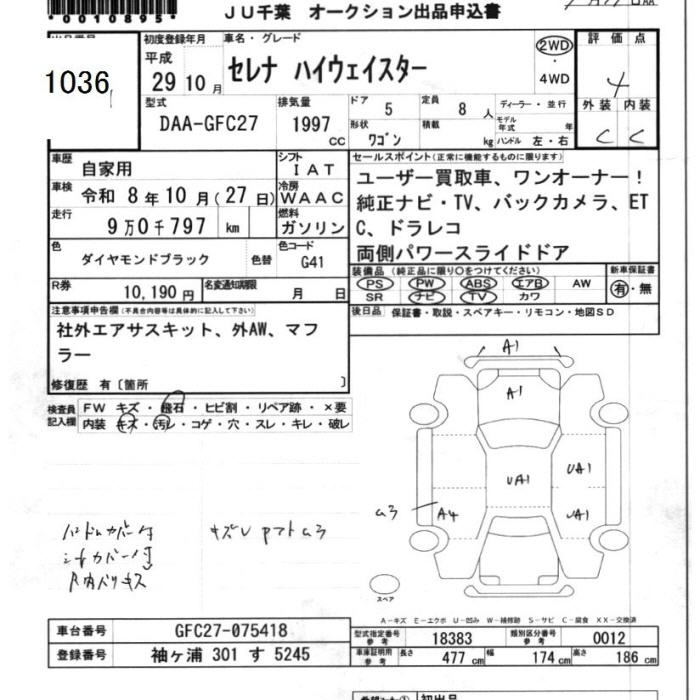 *0010895*
JU千葉 オークション出品申込書
1036
初度登録年月
平成
29 10月
車名・グレード
セレナ ハイウェイスター
2WD
・
4WD
評価点
4
外装 内装
C C
型式
DAA-GFC27
排気量
1997
CC
ドア
5
定員
8 人
形状
ワゴン
積載
kg
ディーラー・並行
モデル年式 年
ハンドル 左・右
車歴
自家用
シフト
IAT
車検
令和 8年10月(27日)
冷房
WAAC
走行
9万0千797 km
燃料
ガソリン
色
ダイヤモンドブラック
色替
色コード
G41
R券
10,190円
名変通知期限
月 日
セールスポイント(正常に機能するものに限ります)
ユーザー買取車、ワンオーナー!
純正ナビ・TV、バックカメラ、ET
C、ドラレコ
両側パワースライドドア
装備品(純正品に限り○をつけてください)
PS PW ABS エアB AW
SR ナビ TV カワ
新車保証書
有・無
後日品 保証書・取説・スペアキー・リモコン・地図SD
注意事項申告欄(不具合内容等は具体的に記入して下さい)
社外エアサスキット、外AW、マフ
ラー
修復歴 有〔箇所 〕
検査員記入欄
FW キズ・飛石・ヒビ割・リペア跡・×要
内装 キズ・汚レ・コゲ・穴・スレ・キレ・破レ
A1
A1
UA1
UA1
UA1
A4
ハンドルカバー付
シートカバー付
スペア
A-キズ E-エクボ U-凹み W-補修跡 S-サビ C-腐食 XX-交換済
車台番号
GFC27-075418
登録番号
袖ヶ浦 301 す 5245
型式指定番号
参考
18383
類別区分番号
参考
0012
車庫証明用
参考
長さ
477 cm
幅
174 cm
高さ
186 cm
初出品